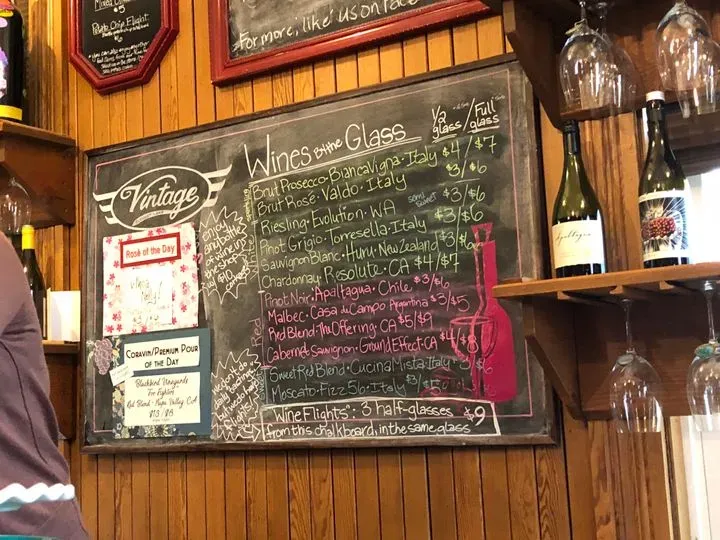 Potato Chip Flight
For more, like us on Face
Wines By the Glass
1/2 glass / Full glass
Brut Prosecco · Biancavigna · Italy $4/$7
Brut Rosé · Valdo · Italy $3/$6
Riesling · Evolution · WA semi sweet $3/$6
Pinot Grigio · Torresella · Italy $3/$6
Sauvignon Blanc · Huru · New Zealand $3/$6
Chardonnay · Resolute · CA $4/$7
Pinot Noir · Apaltagua · Chile $3/$6
Malbec · Casa du Campo · Argentina $3/$5
Red Blend · The Offering · CA $5/$9
Cabernet Sauvignon · Ground Effect · CA $4/$8
Sweet Red Blend · Cucina Mista · Italy
Moscato · Fizz 56 · Italy
"Wine Flights": 3 half-glasses $9
from this chalkboard, in the same glass
Red
Vintage
Enjoy any bottle of wine in the shop
$10
Rosé of the Day
Coravin/Premium Pour
of the Day
Blackbird Vineyards
Red Blend · Napa Valley, CA
$13/$18